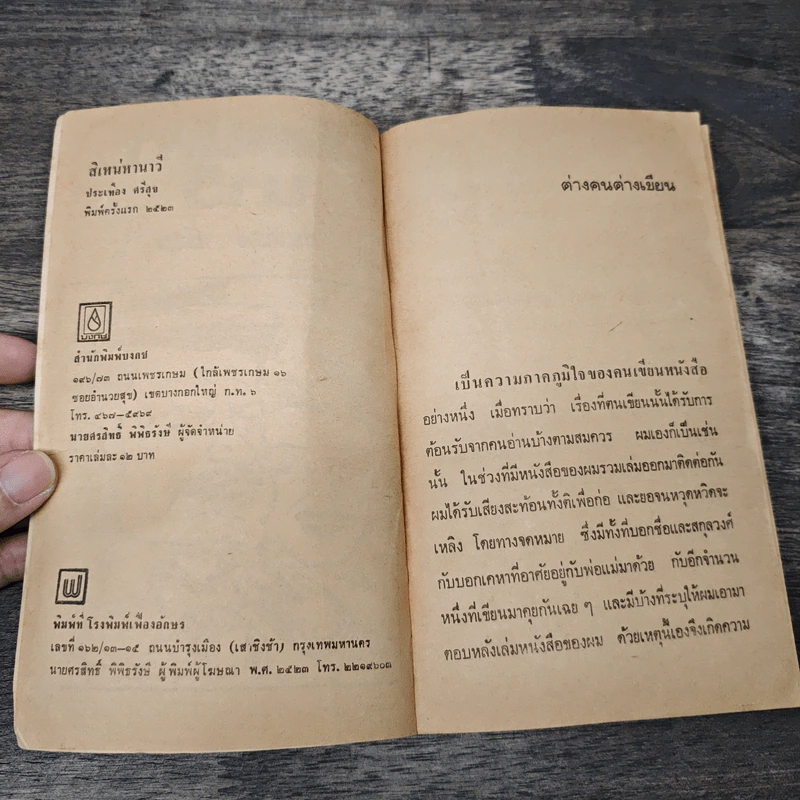 สิเหน่หานาวี
ประเทือง ศรีสุข
พิมพ์ครั้งแรก ๒๕๒๓
บงกช
สำนักพิมพ์บงกช
๑๙๖/๗๓ ถนนเพชรเกษม (ใกล้เพชรเกษม ๑๖
ซอยอำนวยสุข) เขตบางกอกใหญ่ ก.ท. ๖
โทร. ๔๖๗–๕๙๖๙
นายศรสิทธิ์ พิพิธรังษี ผู้จัดจำหน่าย
ราคาเล่มละ ๑๒ บาท
พิมพ์ที่ โรงพิมพ์เฟื่องอักษร
เลขที่ ๑๖๒/๑๓–๑๕ ถนนบำรุงเมือง (เสาชิงช้า) กรุงเทพมหานคร
นายศรสิทธิ์ พิพิธรังษี ผู้พิมพ์ผู้โฆษณา พ.ศ. ๒๕๒๓ โทร. ๒๒๑๙๖๐๓
ต่างคนต่างเขียน
เป็นความภาคภูมิใจของคนเขียนหนังสือ
อย่างหนึ่ง เมื่อทราบว่า เรื่องที่ตนเขียนนั้นได้รับการ
ต้อนรับจากคนอ่านบ้างตามสมควร ผมเองก็เป็นเช่น
นั้น ในช่วงที่มีหนังสือของผมรวมเล่มออกมาติดต่อกัน
ผมได้รับเสียงสะท้อนทั้งติเพื่อก่อ และยอจนหวุดหวิดจะ
เหลิง โดยทางจดหมาย ซึ่งมีทั้งที่บอกชื่อและสกุลวงศ์
กับบอกเคหาที่อาศัยอยู่กับพ่อแม่มาด้วย กับอีกจำนวน
หนึ่งที่เขียนมาคุยกันเฉย ๆ และมีบ้างที่ระบุให้ผมเอามา
ตอบหลังเล่มหนังสือของผม ด้วยเหตุนี้เองจึงเกิดความ